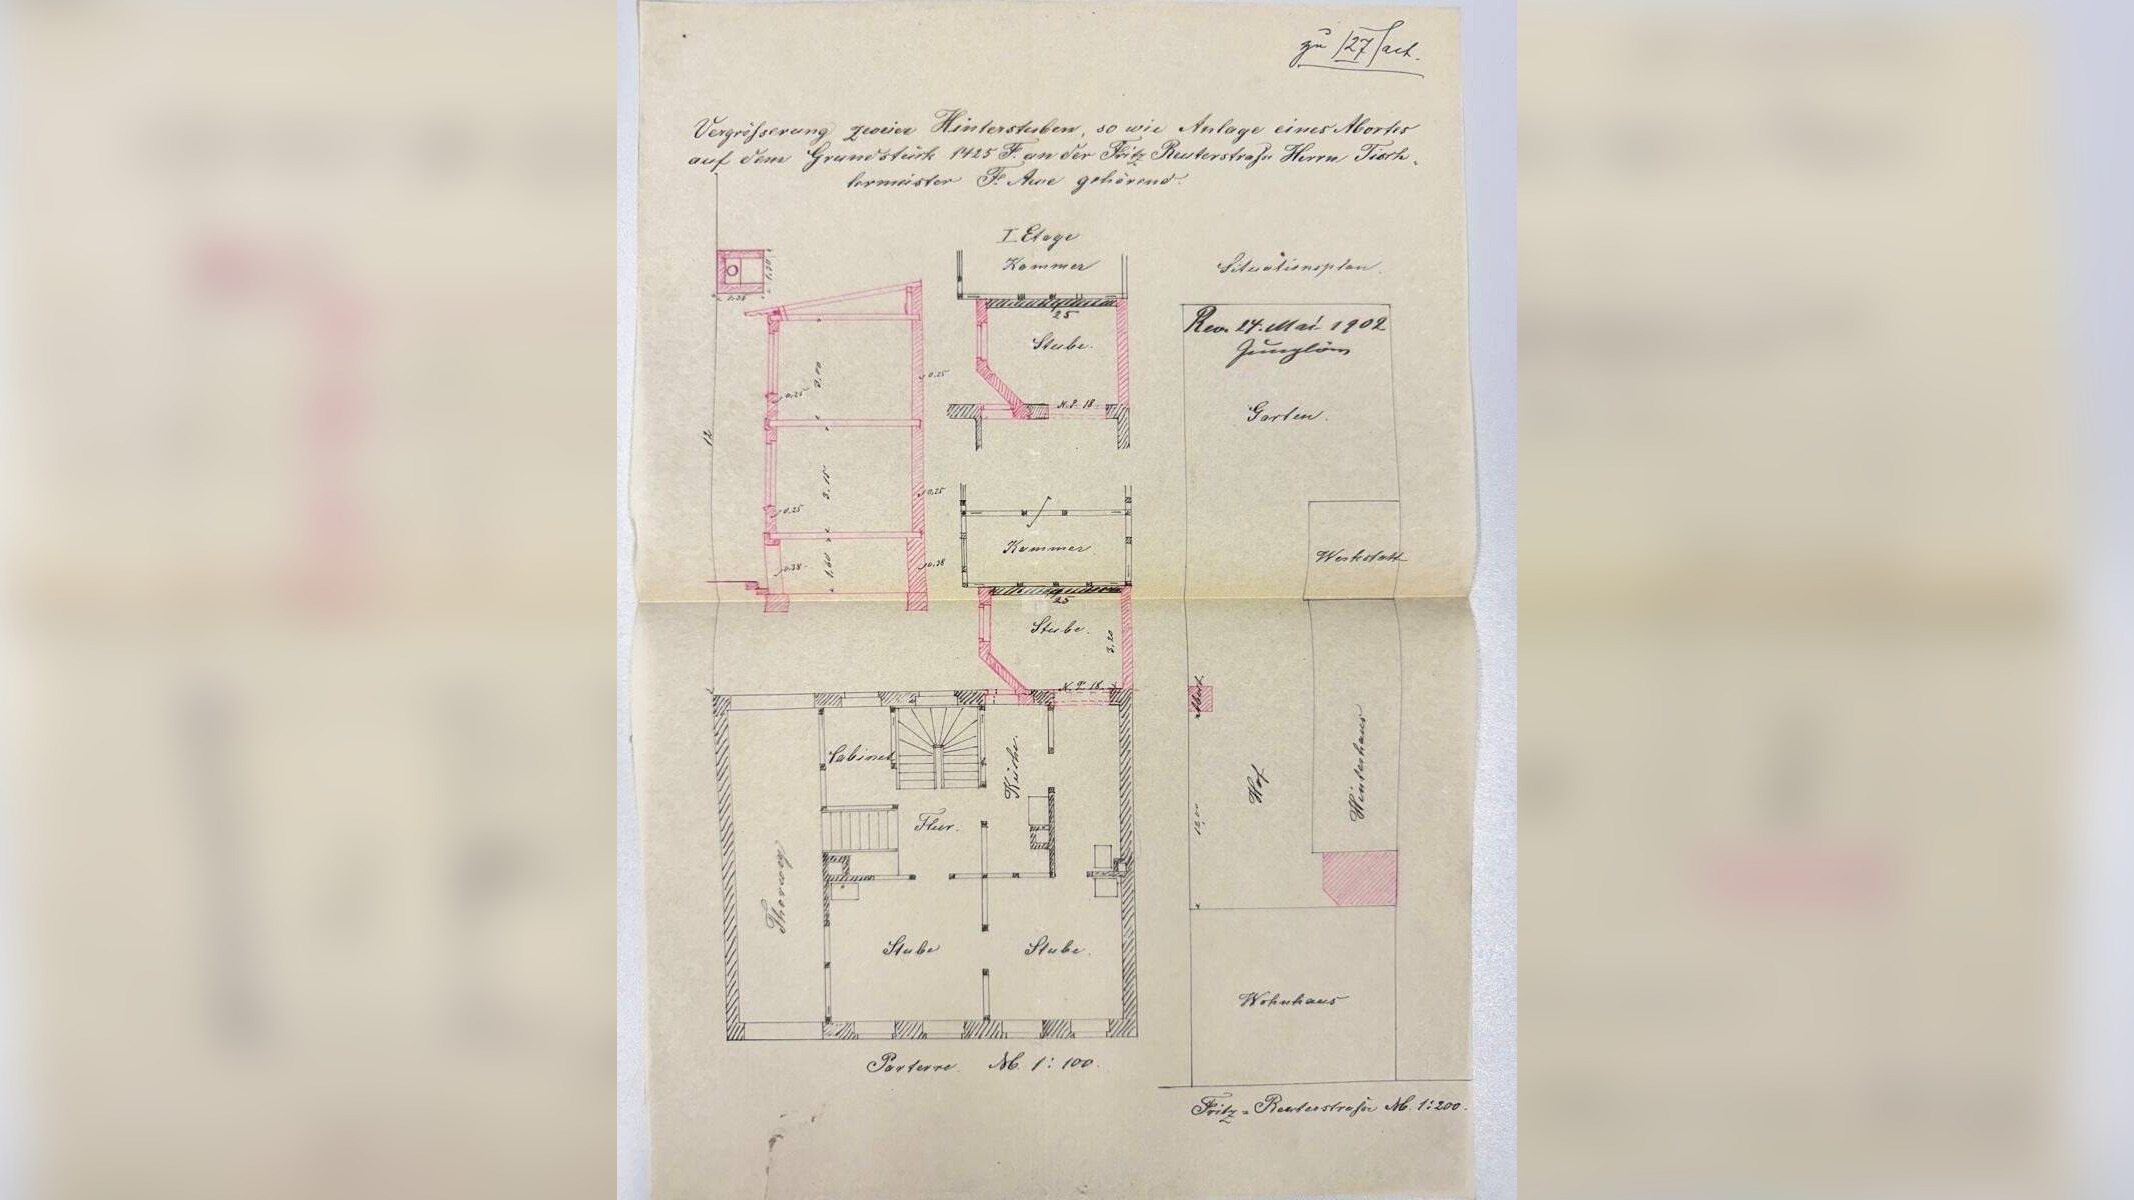 zu 127/act.
Vergrößerung zweier Hinterstuben, so wie Anlage eines Abortes
auf dem Grundstück 1425 F. an der Fritz Reuterstraße Herrn Tisch-
lermeister F. Awe gehörend.
I. Etage
Kammer
Situationsplan.
1.20
0.96
25
Rev. 24. Mai 1902
Stube.
3.00
0.25
0.25
N.P. 18.
Garten.
12
3.15
0.25
0.25
Kammer
Werkstatt
1.60
0.38
0.38
25
Stube.
3,20
N.P. 18.
Abort
Cabinet
Küche.
Hof
Hinterhaus
Flur.
12,00
Thorweg
Stube
Stube.
Wohnhaus
Parterre. M. 1:100.
Fritz-Reuterstraße M. 1:200.